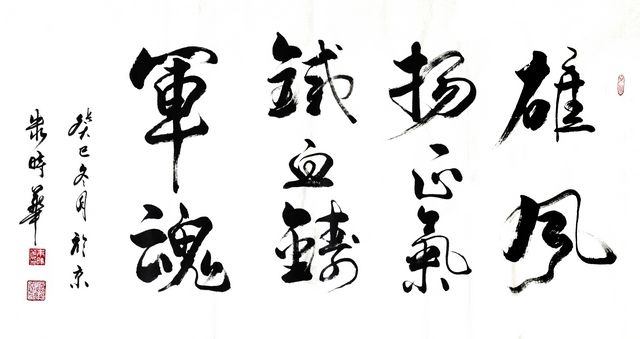 雄风
扬正氣
鐵血鑄
軍魂
癸巳冬月於京
時華